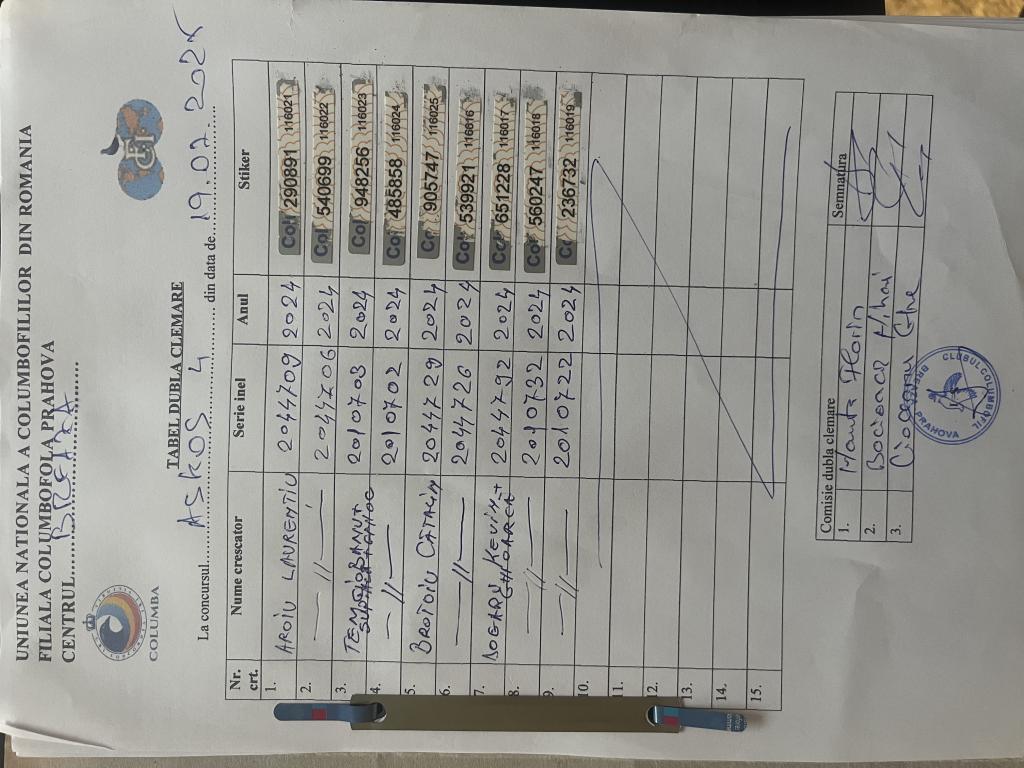 UNIUNEA NATIONALA A COLUMBOFILILOR DIN ROMANIA
FILIALA COLUMBOFOLA PRAHOVA
CENTRUL......BREAZA......
COLUMBA
TABEL DUBLA CLEMARE
La concursul....ASKOS 4.... din data de 19.07.2024
Nr. crt. Nume crescator Serie inel Anul Stiker
1. AROIU LAURENTIU 2044709 2024 Col 290891 116021
2. —//— 2044706 2024 540699 116022
3. TEMĂTORANUT 2010703 2024 Col 948256 116023
4. —//— 2010702 2024 Co 485858 116024
5. BROTOIU CATALIN 2044729 2024 Co 905747 116025
6. —//— 2044726 2024 Co 539921 116016
7. KEVIN+ 2044792 2024 Co 651228 116017
8. —//— 2010732 2024 Co 560247 116018
9. —//— 2010722 2024 Co 236732 116019
10.
11.
12.
13.
14.
15.
Comisie dubla clemare Semnatura
1. Manta Florin
2. Mihai
3. Ghe
CLUBUL COLUMBOFIL
PRAHOVA